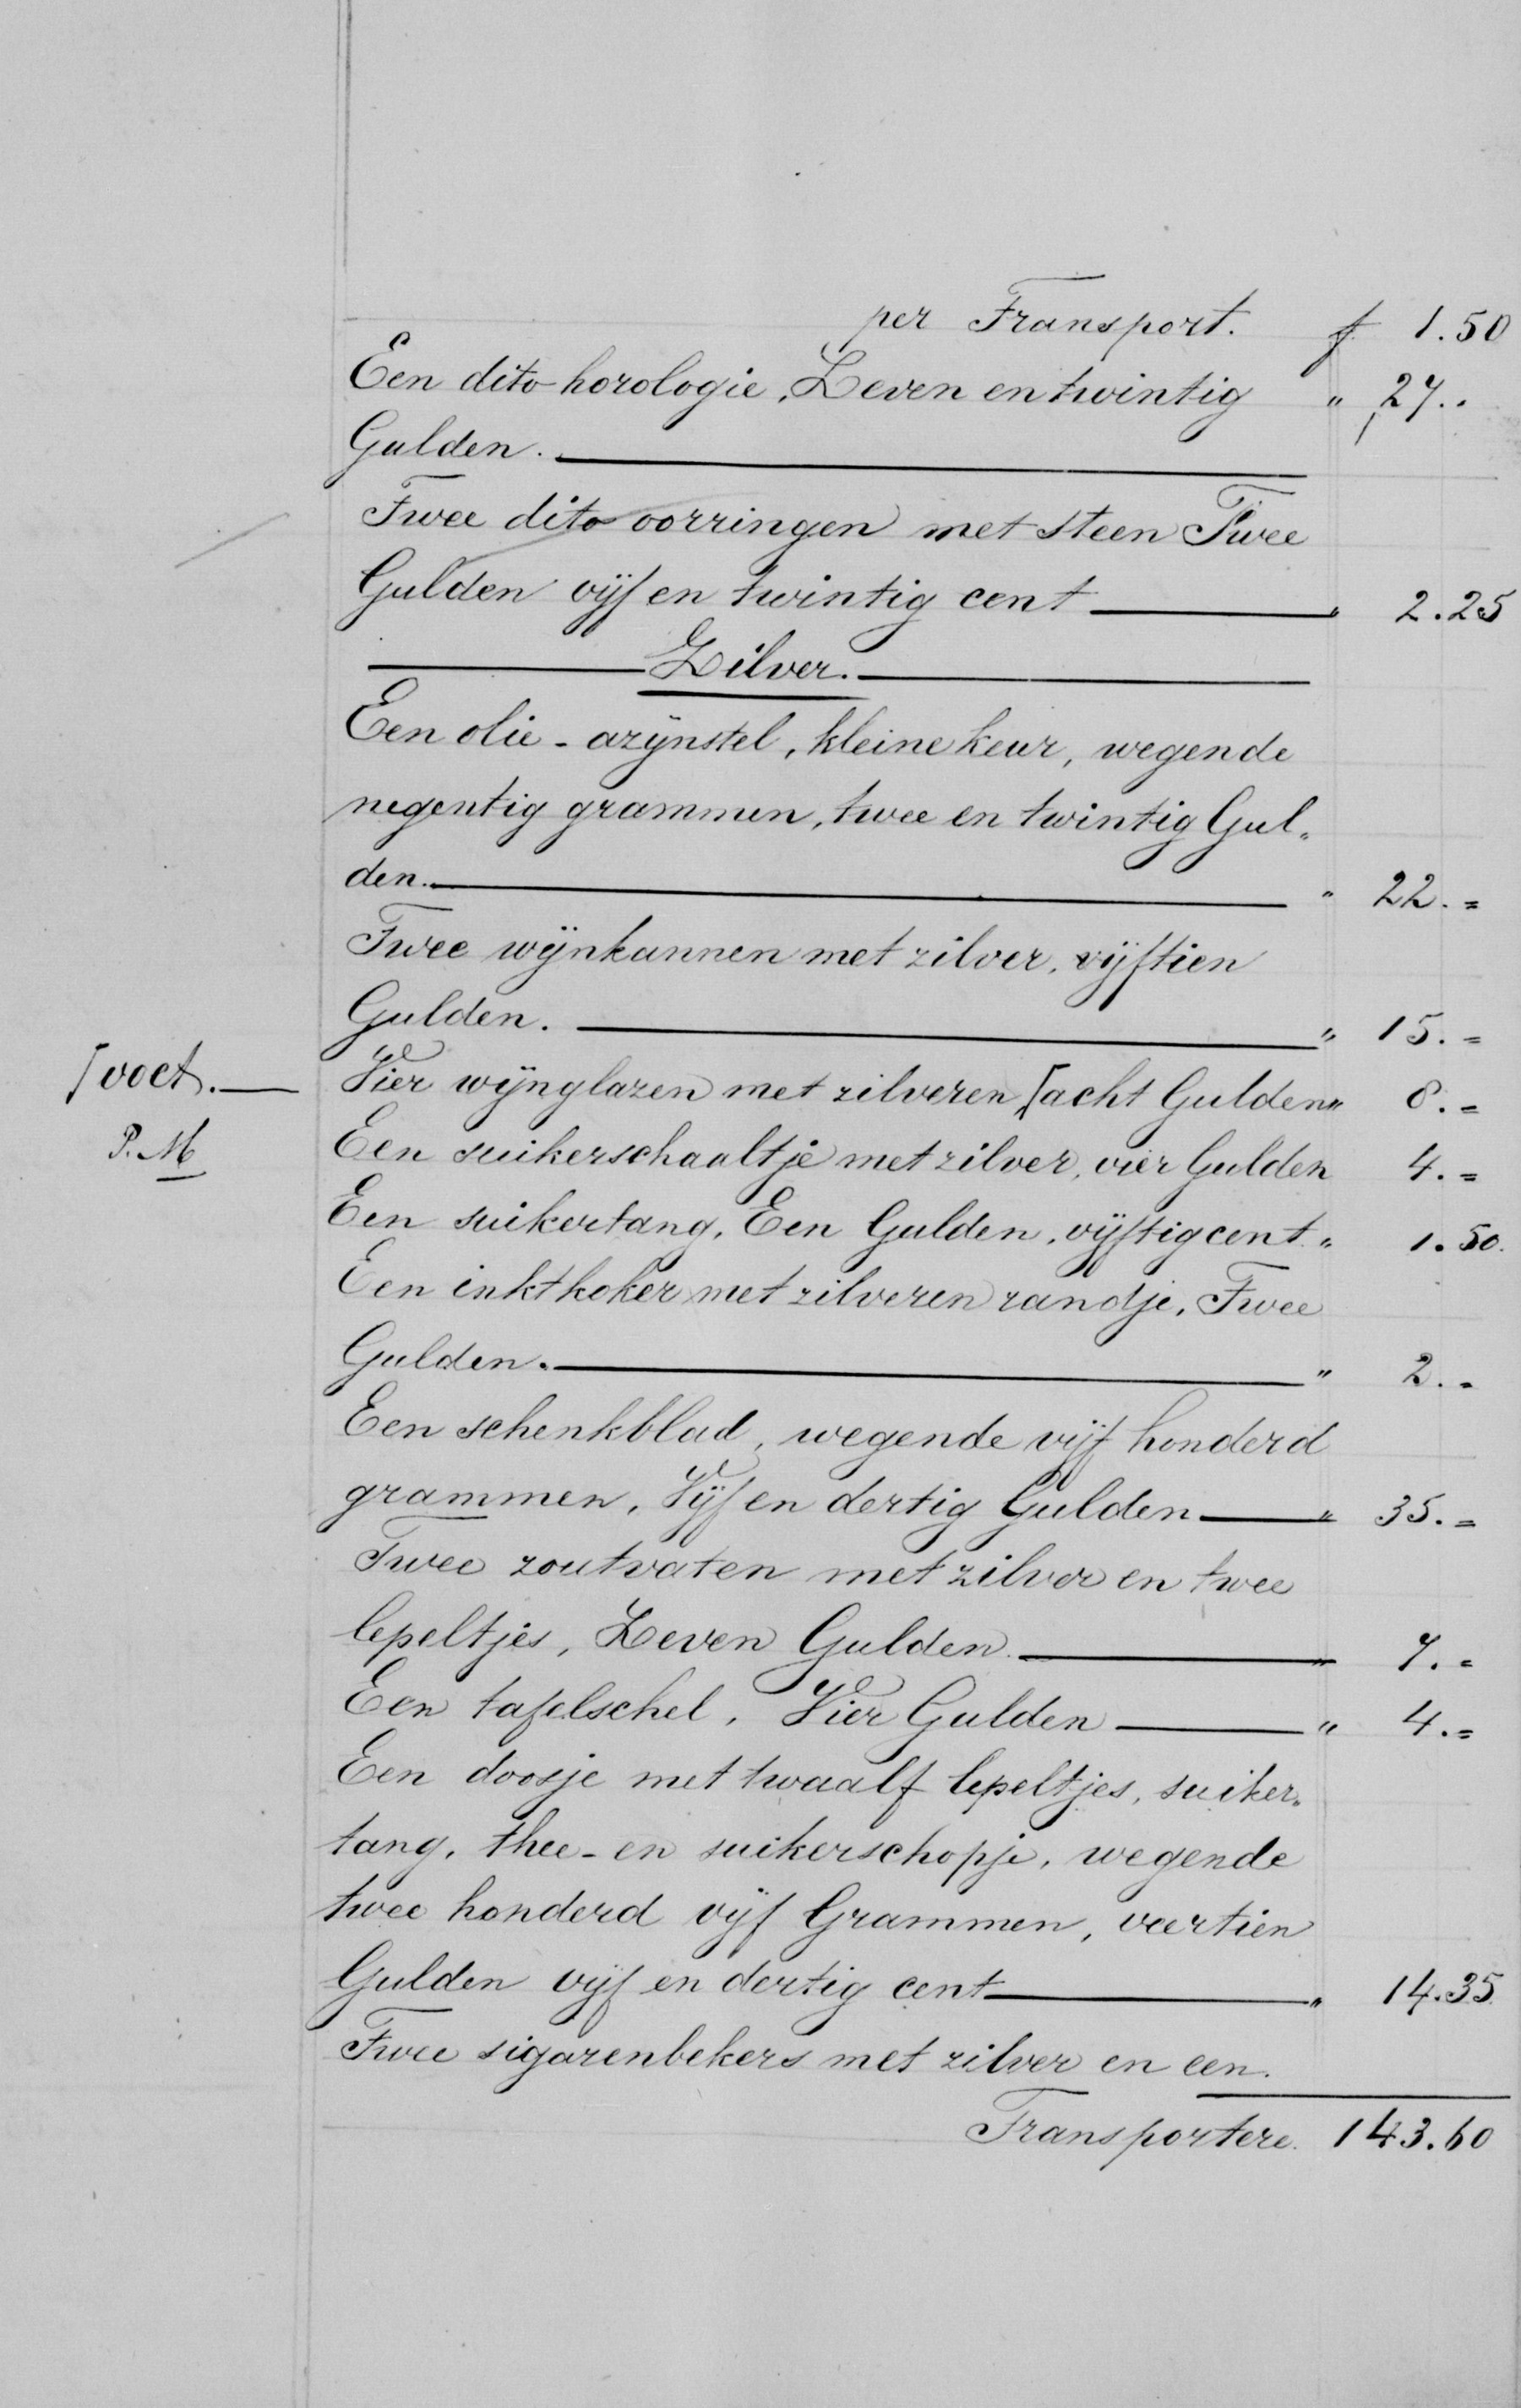 per Transport. f 1.50
Een dito horologie, Zeven en twintig " 27..
Gulden.
Twee dito oorringen met steen Twee
Gulden vijf en twintig cent " 2.25
Zilver.
Een olie-azijnstel, kleine keur, wegende
negentig grammen, twee en twintig Gul-
den. " 22.=
Twee wijnkannen met zilver, vijftien
Gulden. " 15.=
⌈voet. Vier wijnglazen met zilveren ⌈acht Gulden " 8.=
P.M Een suikerschaaltje met zilver, vier Gulden 4.=
Een suikertang, Een Gulden, vijftig cent. " 1.50.
Een inktkoker met zilveren randje, Twee
Gulden. " 2.=
Een schenkblad, wegende vijf honderd
grammen, Vijf en dertig Gulden " 35.=
Twee zoutvaten met zilver en twee
lepeltjes, Zeven Gulden. " 7.=
Een tafelschel, Vier Gulden " 4.=
Een doosje met twaalf lepeltjes, suiker-
tang, thee- en suikerschopje, wegende
twee honderd vijf Grammen, veertien
Gulden vijf en dertig cent " 14.35
Twee sigarenbekers met zilver en een.
Transportere. 143.60